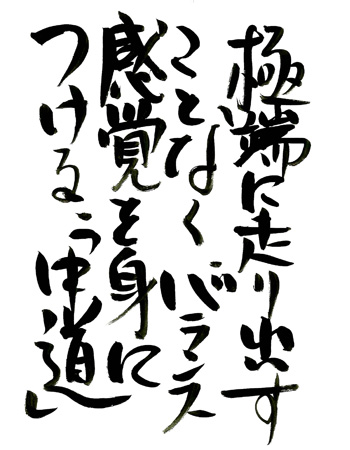 極端に走り出す
ことなくバランス
感覚を身に
つける「中道」